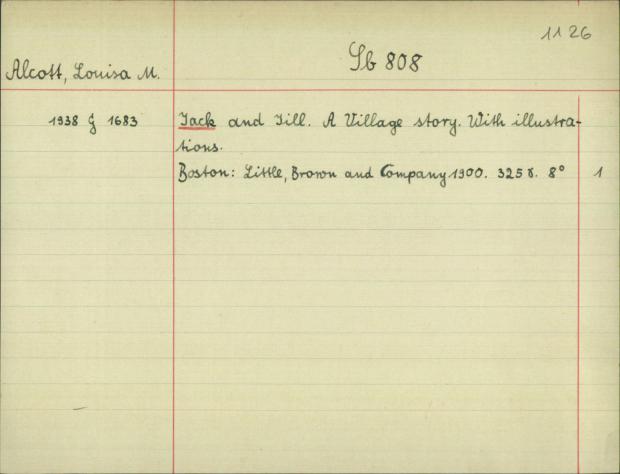 11 26
Alcott, Louisa M.
Sb 808
1938 g 1683
Jack and Jill. A Village story. With illustra-
tions.
Boston: Little, Brown and Company 1900. 325 S. 8° 1